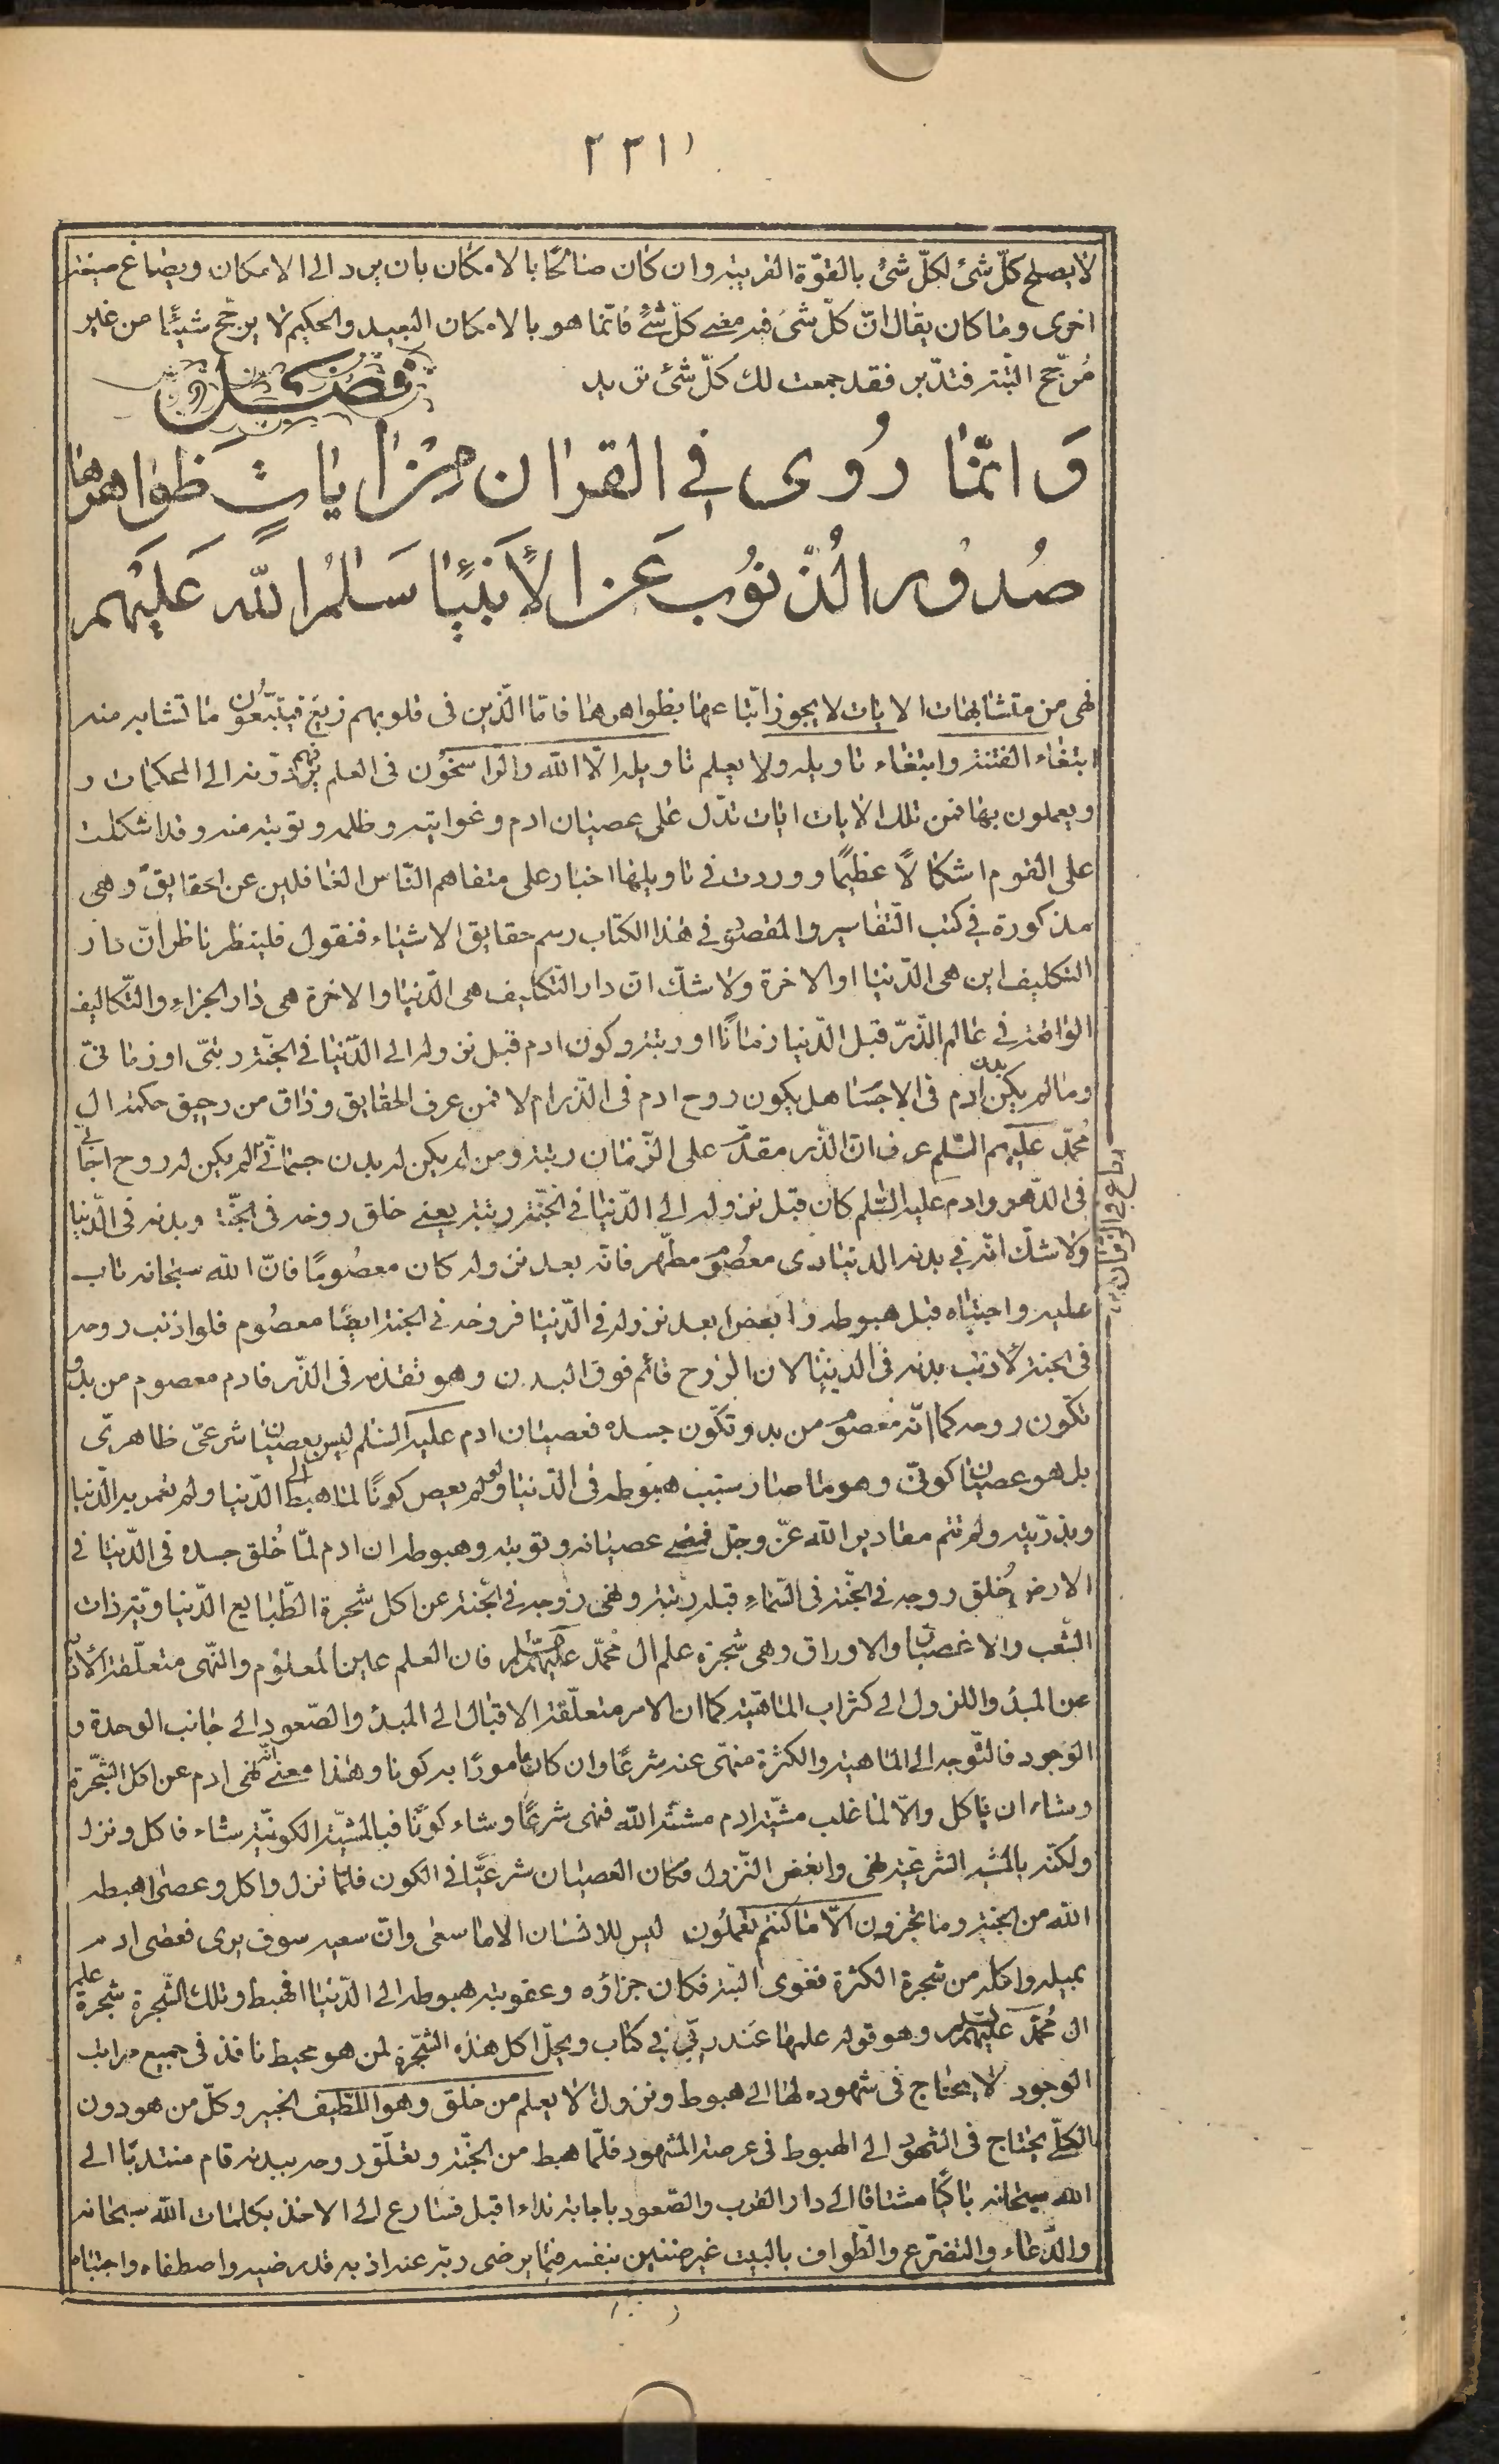 ٢٣١
لا يصلح كلّ شئ لكلّ شئ بالقوّة القريبة وان كان صالحًا بالامكان بان يرد الى الامكان ويصاغ صيغة
اخرى وما كان يقال انّ كلّ شئ فيه معنى كلّ شئ فانّما هو بالامكان البعيد والحكيم لا يرجّح شيئًا من غير
مُرجّح البتّة فتدّبر فقد جمعت لك كلّ شئ تريد
فصل
وَ امّا رُوى فى القران من ايات ظواهرها
صُدور الذّنوُب عَن الأنبيٰا سَلٰمُ اللّه عَليَهم
فهى من متشابهات الايات لا يجوز اتّباعها بظواهرها فامّا الّذين فى قلوبهم زيغ فيتّبعُون ما تشابه منه
ابتغاء الفتنة وابتغاء تاويله ولا يعلم تاويله الّا اللّه والراسخُون فى العلم فهم يردّونه الى المحكمات و
ويعملون بها فمن تلك الايات ايات تدّل على عصيان ادم وغوايته وظلمه وتوبته منه وقد اشكلت
على القوم اشكالًا عظيمًا ووردت فى تاويلها اخبار على متفاهم النّاس الغافلين عن الحقايق وهى
مذكورة فى كتب التّفاسير والمقصوُد فى هذا الكتاب رسم حقايق الاشياء فنقول فلينظر ناظر انّ دار
التكليف اين هى الدّنيا او الاخرة ولا شكّ انّ دار التّكليف هى الدّنيا والاخرة هى دار الجزاءِ والتّكاليف
الواقعة فى عالم الذّرّ قبل الدّنيا زمانًا او رتبة وكون ادم قبل نزوله الى الدّنيا فى الجنّة رتبىّ او زمانىّ
وما لم يكن بدن ادم فى الاجسٰا هل يكون روح ادم فى الذّر ام لا فمن عرف الحقايق وذاق من رحيق حكمة ال
مُحمّد عليهم السّلم عرف انّ الذّر مقدّم على الزّمان رتبة ومن لم يكن له بدن جسمانىّ لم يكن له روح اجٰا
فى الدّهر وادم عليه السّلم كان قبل نزوله الى الدّنيا فى الجنّة رتبة يعنى خلق روحه فى الجنّة وبدنه فى الدّنيا
ولا شكّ انّه فى بدنه الدنياوى معصُوم مطّهر فانّه بعد نزوله كان معصُومًا فانّ اللّه سبحانه تاب
عليه واجتباه قبل هبوطه وا بعض ا بعد نزوله فى الدّنيا فروحه فى الجنة ايضًا معصُوم فلو اذنب روحه
فى الجنة لاذنب بدنه فى الدينا لان الروح قائم فوق البدن وهو تقدّمه فى الذّر فادم معصوم من بدو
تكّون روحه كما انّه معصوُم من بدو تكّون جسده فعصيان ادم عليه السّلم ليس بعصيان شرعىّ ظاهرىّ
بل هو عصيان كونىّ وهو ما صار سبب هبوطه فى الدّنيا ولو لم يعص كونًا لما هبط الى الدّنيا ولم تعمر به الدّنيا
وبذرّيته ولم تتم مقادير اللّه عزّ وجلّ فمعنى عصيانه وتوبته وهبوطه ان ادم لمّا خُلق جسده فى الدّنيا فى
الارض خُلق روحه فى الجنّة فى السّماءِ قبله رتبة ونهى زوجه فى الجنة عن اكل شجرة الطّبايع الدّنياويّة ذات
الشّعب والاغصان والاوراق وهى شجرة علم ال مُحمّد عليهم السّلم فان العلم عين المعلوُم والنّهى متعلّقة الادبار
عن المبدٔ والنزول الى كثرات الماهيّة كما ان الامر متعلّقة الاقبال الى المبدٔ والصّعود الى جانب الوحدة و
الوَجود فالتّوجه الى الماهية والكثرة منهىّ عنه شرعًا وان كان مامورًا به كونا وهذا معنى انّه نهى ادم عن اكل الشّجرة
وشاء ان ياكل والّا لما غلب مشّية ادم مشيّة اللّه فنهى شرعًا وشاء كونًا فبالمشيّة الكونيّة شاء فاكل ونزل
ولكنّه بالمشية الشرعيّة نهى وابغض النّزول فكان العصيان شرعيًّا فى الكون فلمّا نزل واكل وعصى اهبطه
اللّه من الجنّة وما تجزون الّا ما كنتم تعملُون ليس للانسان الا ما سعى وانّ سعيه سوف يرى فعصٰى ادم
بميله واكله من شجرة الكثرة فغوى البّتة فكان جزاؤه وعقوبته هبوطه الى الدّنيا فهبط وتلك الشّجرة شجرة علم
ال مُحمّد عليهم السّلم وهو قوله علمها عند ربّى فى كتاب ويحلّ اكل هذه الشّجرة لمن هو محيط نافذ فى جميع مراتب
الوجود لا يحتاج فى شهوده لها الى هبوط ونزول الا يعلم من خلق وهو اللّطيف الخبير وكلّ من هو دون
الكلّى يحتاج فى الشّهود الى الهبوط فى عرصة المشهود فلّما هبط من الجنّة وتعلّق روحه ببدنه قام منتدبًا الى
اللّه سبحانه باكيًا مشتاقا الى دار القرب والصّعود باجابة نداء اقبل فسارع الى الاخذ بكلمات اللّه سبحانه
والدّعاء والتضرّع والطّواف بالبيت غير ضنين بنفسه فيما يرضى ربّه عنه اذ به قد رضيه واصطفاه واجتباه